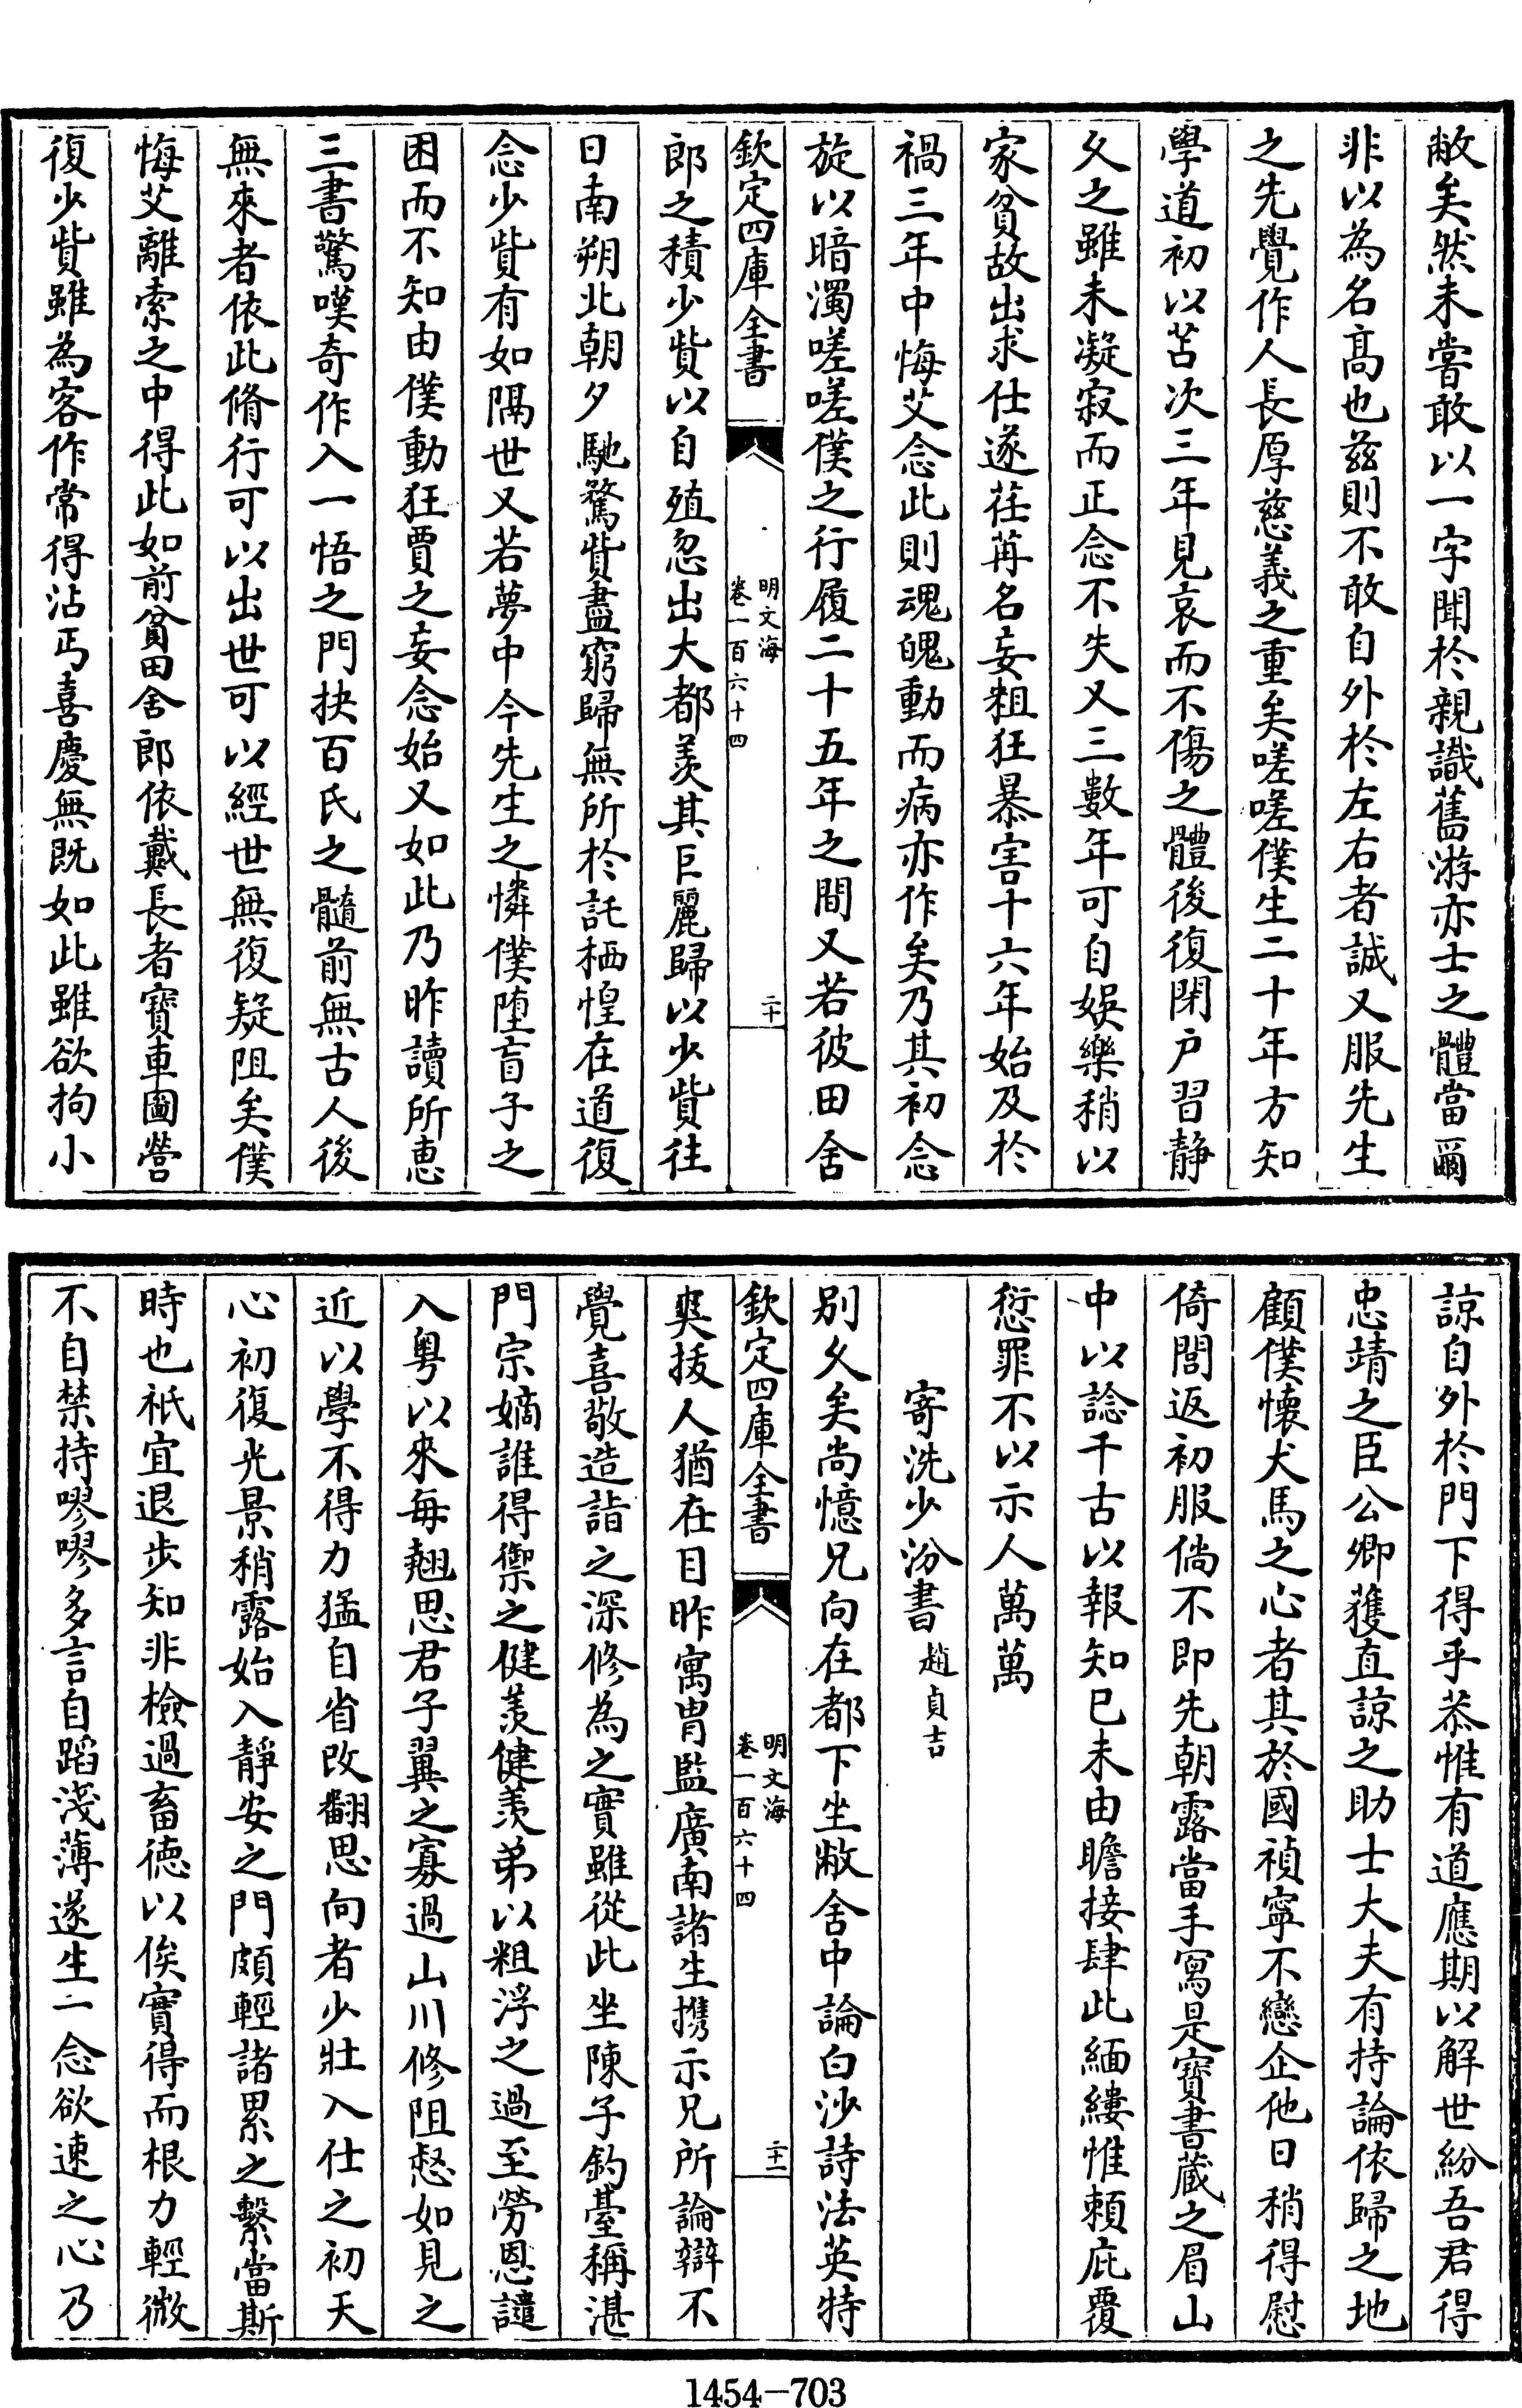 敝矣然未嘗敢以一字聞於親識舊游亦士之體當爾
非以為名髙也兹則不敢自外於左右者誠又服先生
之先覺作人長厚慈義之重矣嗟嗟僕生二十年方知
學道初以苫次三年見哀而不傷之體後復閉户習静
久之雖未凝寂而正念不失又三數年可自娯樂稍以
家貧故出求仕遂荏苒名妄粗狂暴害十六年始及於
禍三年中悔艾念此則魂魄動而病亦作矣乃其初念
旋以暗濁嗟嗟僕之行履二十五年之間又若彼田舍
欽定四庫全書
明文海
卷一百六十四
二十
郎之積少貲以自殖忽出大都羡其巨麗歸以少貲往
日南朔北朝夕馳騖貲盡窮歸無所於託栖惶在道復
念少貲有如隔世又若夢中今先生之憐僕墮盲子之
困而不知由僕動狂賈之妄念始又如此乃昨讀所惠
三書驚嘆奇作入一悟之門抉百氏之髓前無古人後
無來者依此脩行可以出世可以經世無復疑阻矣僕
悔艾離索之中得此如前貧田舍郎依戴長者寳車圖營
復少貲雖為客作常得沾丐喜慶無既如此雖欲拘小
諒自外於門下得乎恭惟有道應期以解世紛吾君得
忠靖之臣公卿獲直諒之助士大夫有持論依歸之地
顧僕懐犬馬之心者其於國禎寧不戀企他日稍得慰
倚閭返初服倘不即先朝露當手寫是寳書藏之眉山
中以諗千古以報知已未由瞻接肆此緬縷惟賴庇覆
愆罪不以示人萬萬
寄洗少汾書 趙貞吉
别久矣尚憶兄向在都下坐敝舍中論白沙詩法英特
欽定四庫全書
明文海
卷一百六十四
二十一
爽拔人猶在目昨寓胄監廣南諸生携示兄所論辯不
覺喜敬造詣之深修為之實雖從此坐陳子釣臺稱湛
門宗嫡誰得禦之健羡健羡弟以粗浮之過至勞恩譴
入粤以來毎翹思君子翼之寡過山川修阻惄如見之
近以學不得力猛自省改翻思向者少壯入仕之初天
心初復光景稍露始入靜安之門頗輕諸累之繫當斯
時也祇宜退步知非檢過畜徳以俟實得而根力輕微
不自禁持嘐嘐多言自蹈淺薄遂生一念欲速之心乃
1454-703